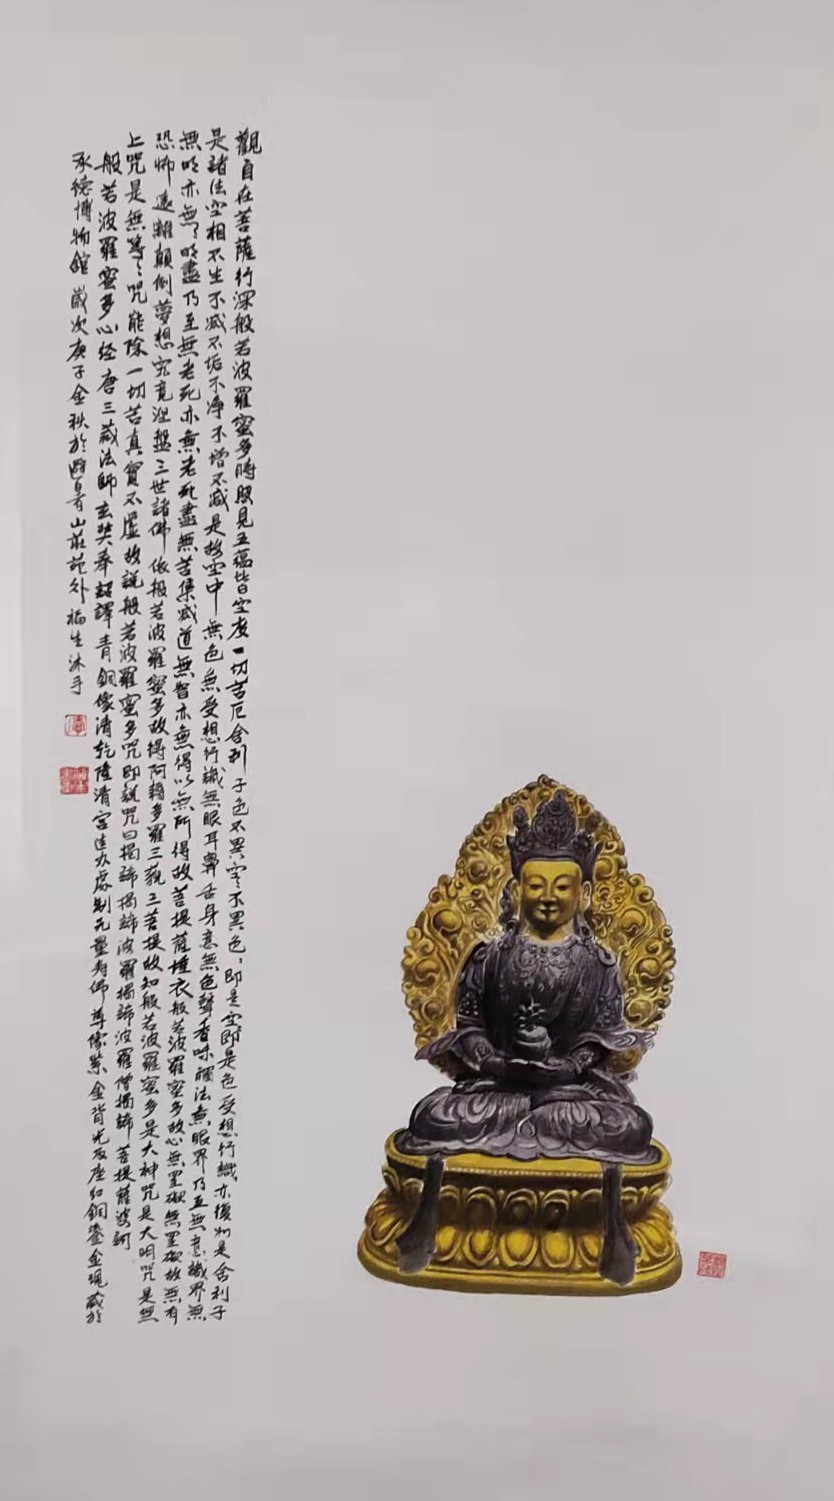 觀自在菩薩行深般若波羅蜜多時照見五蘊皆空度一切苦厄舍利子色不異空々不異色色即是空空即是色受想行識亦復如是舍利子
是諸法空相不生不滅不垢不淨不增不減是故空中無色無受想行識無眼耳鼻舌身意無色聲香味觸法無眼界乃至無意識界無
無明亦無々明盡乃至無老死亦無老死盡無苦集滅道無智亦無得以無所得故菩提薩埵依般若波羅蜜多故心無罣礙無罣礙故無有
恐怖遠離顛倒夢想究竟涅盤三世諸佛依般若波羅蜜多故得阿耨多羅三藐三菩提故知般若波羅蜜多是大神咒是大明咒是無
上咒是無等々咒能除一切苦真實不虛故說般若波羅蜜多咒即說咒曰揭諦揭諦波羅揭諦波羅僧揭諦菩提薩婆訶
般若波羅蜜多心经唐三藏法師玄奘奉詔譯青銅像清乾隆清宮造办處制无量寿佛尊像紫金背光及座红銅鎏金現藏於
承德博物館歲次庚子金秋於避暑山莊苑外福生沐手